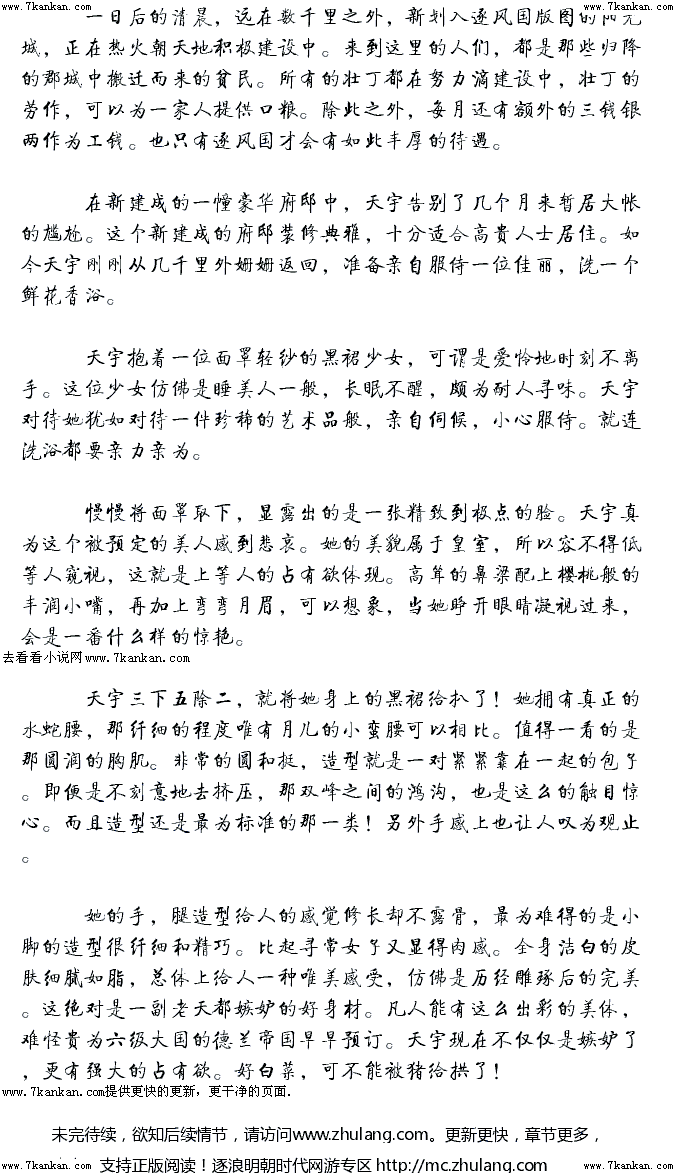 www.7kankan.com www.7kankan.com
一日后的清晨，远在数千里之外，新划入逐风国版图的阳光
城，正在热火朝天地积极建设中。来到这里的人们，都是那些归降
的郡城中搬迁而来的贫民。所有的壮丁都在努力滴建设中，壮丁的
劳作，可以为一家人提供口粮。除此之外，每月还有额外的三钱银
两作为工钱。也只有逐风国才会有如此丰厚的待遇。
在新建成的一幢豪华府邸中，天宇告别了几个月来暂居大帐
的尴尬。这个新建成的府邸装修典雅，十分适合高贵人士居住。如
今天宇刚刚从几千里外姗姗返回，准备亲自服侍一位佳丽，洗一个
鲜花香浴。
天宇抱着一位面罩轻纱的黑裙少女，可谓是爱怜地时刻不离
手。这位少女仿佛是睡美人一般，长眠不醒，颇为耐人寻味。天宇
对待她犹如对待一件珍稀的艺术品般，亲自伺候，小心服侍。就连
洗浴都要亲力亲为。
慢慢将面罩取下，显露出的是一张精致到极点的脸。天宇真
为这个被预定的美人感到悲哀。她的美貌属于皇室，所以容不得低
等人窥视，这就是上等人的占有欲体现。高耸的鼻梁配上樱桃般的
丰润小嘴，再加上弯弯月眉，可以想象，当她睁开眼睛凝视过来，
会是一番什么样的惊艳。
去看看小说网www.7kankan.com
天宇三下五除二，就将她身上的黑裙给扒了！她拥有真正的
水蛇腰，那纤细的程度唯有月儿的小蛮腰可以相比。值得一看的是
那圆润的胸肌。非常的圆和挺，造型就是一对紧紧靠在一起的包子
。即便是不刻意地去挤压，那双峰之间的鸿沟，也是这么的触目惊
心。而且造型还是最为标准的那一类！另外手感上也让人叹为观止
。
她的手，腿造型给人的感觉修长却不露骨，最为难得的是小
脚的造型很纤细和精巧。比起寻常女子又显得肉感。全身洁白的皮
肤细腻如脂，总体上给人一种唯美感受，仿佛是历经雕琢后的完美
。这绝对是一副老天都嫉妒的好身材。凡人能有这么出彩的美体，
难怪贵为六级大国的德兰帝国早早预订。天宇现在不仅仅是嫉妒了
，更有强大的占有欲。好白菜，可不能被猪给拱了！
www.7kankan.com提供更快的更新，更干净的页面.
未完待续，欲知后续情节，请访问www.zhulang.com。更新更快，章节更多，
支持正版阅读！逐浪明朝时代网游专区 http://mc.zhulang.com/
www.7kankan.com www.7kankan.com